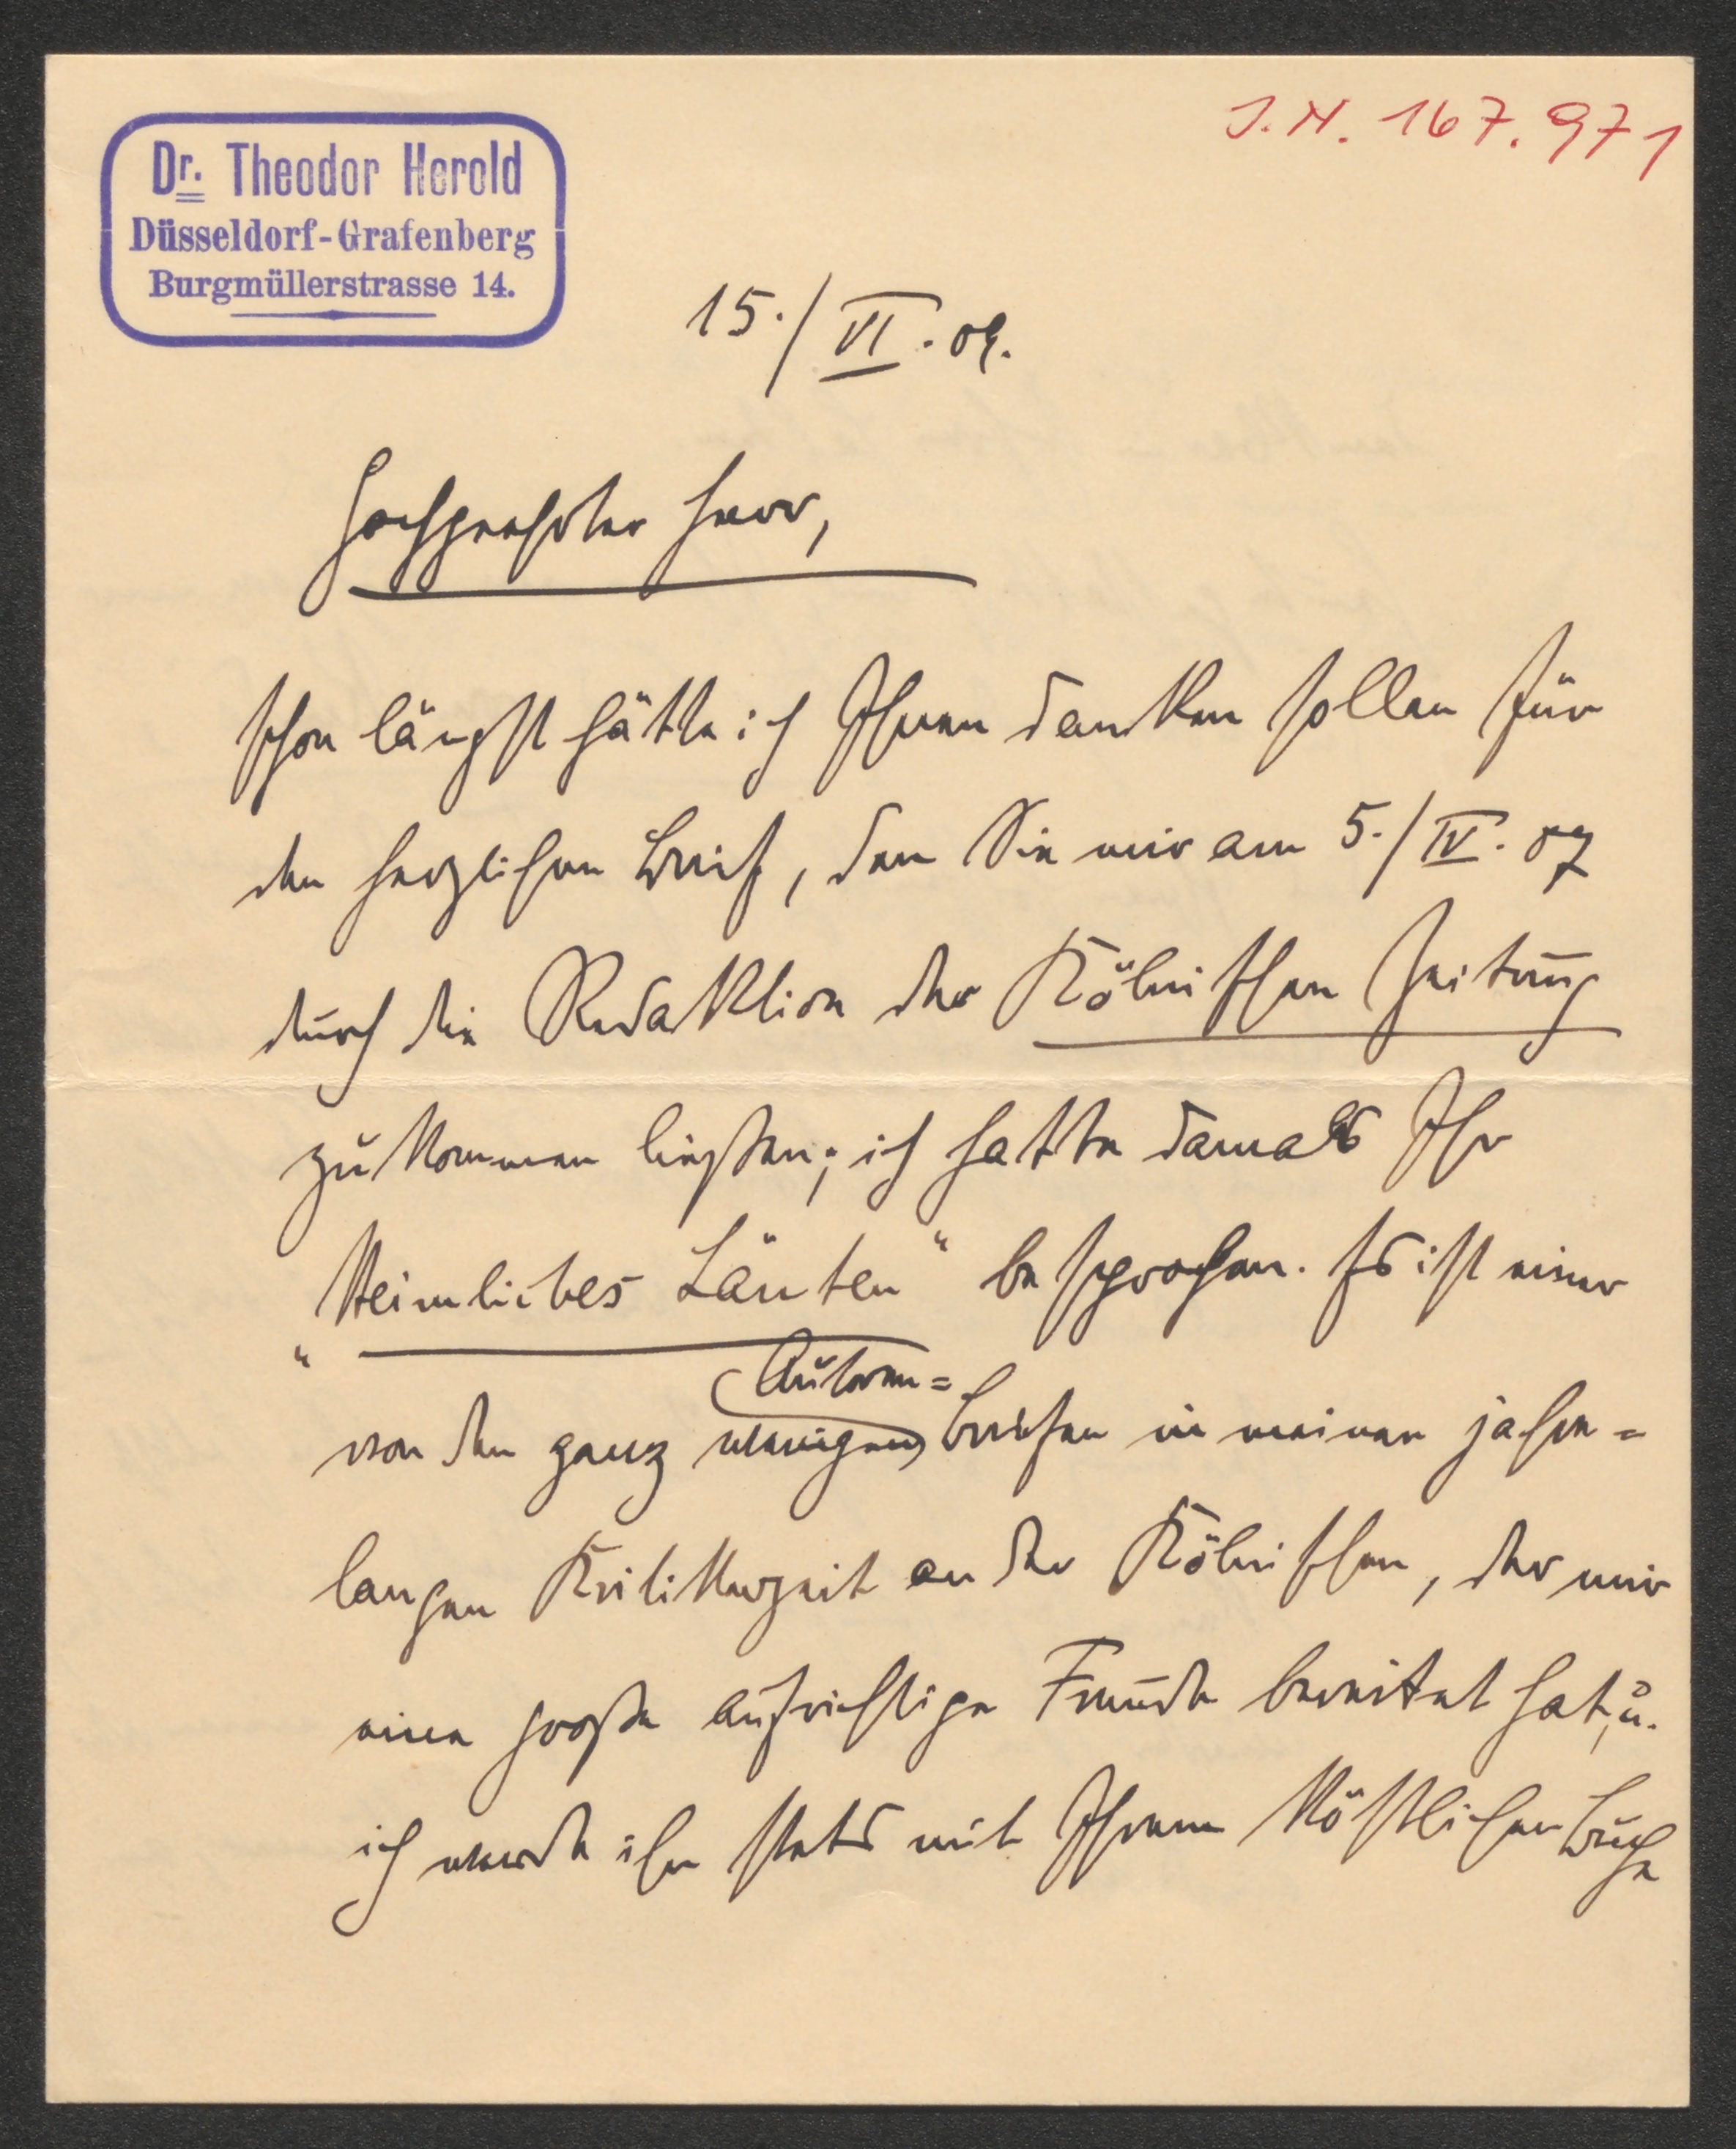 J.N. 167.971
Dr. Theodor Herold
Düsseldorf-Grafenberg
Burgmüllerstrasse 14.
15./VI. 09.
Hochgeehrter Herr,
schon längst hätte ich Ihnen danken sollen für
den herzlichen Brief, den Sie mir am 5./IV. 07
durch die Redaktion der Kölnischen Zeitung
zukommen ließen; ich hatte damals Ihr
„Heimliches Läuten“ besprochen. Es ist einer
Autoren=
von den ganz wenigen Briefen in meiner jahre=
langen Kritikerzeit an der Kölnischen, der mir
eine große aufrichtige Freude bereitet hat, u.
ich werde ihn stets mit Ihrem köstlichen Buche